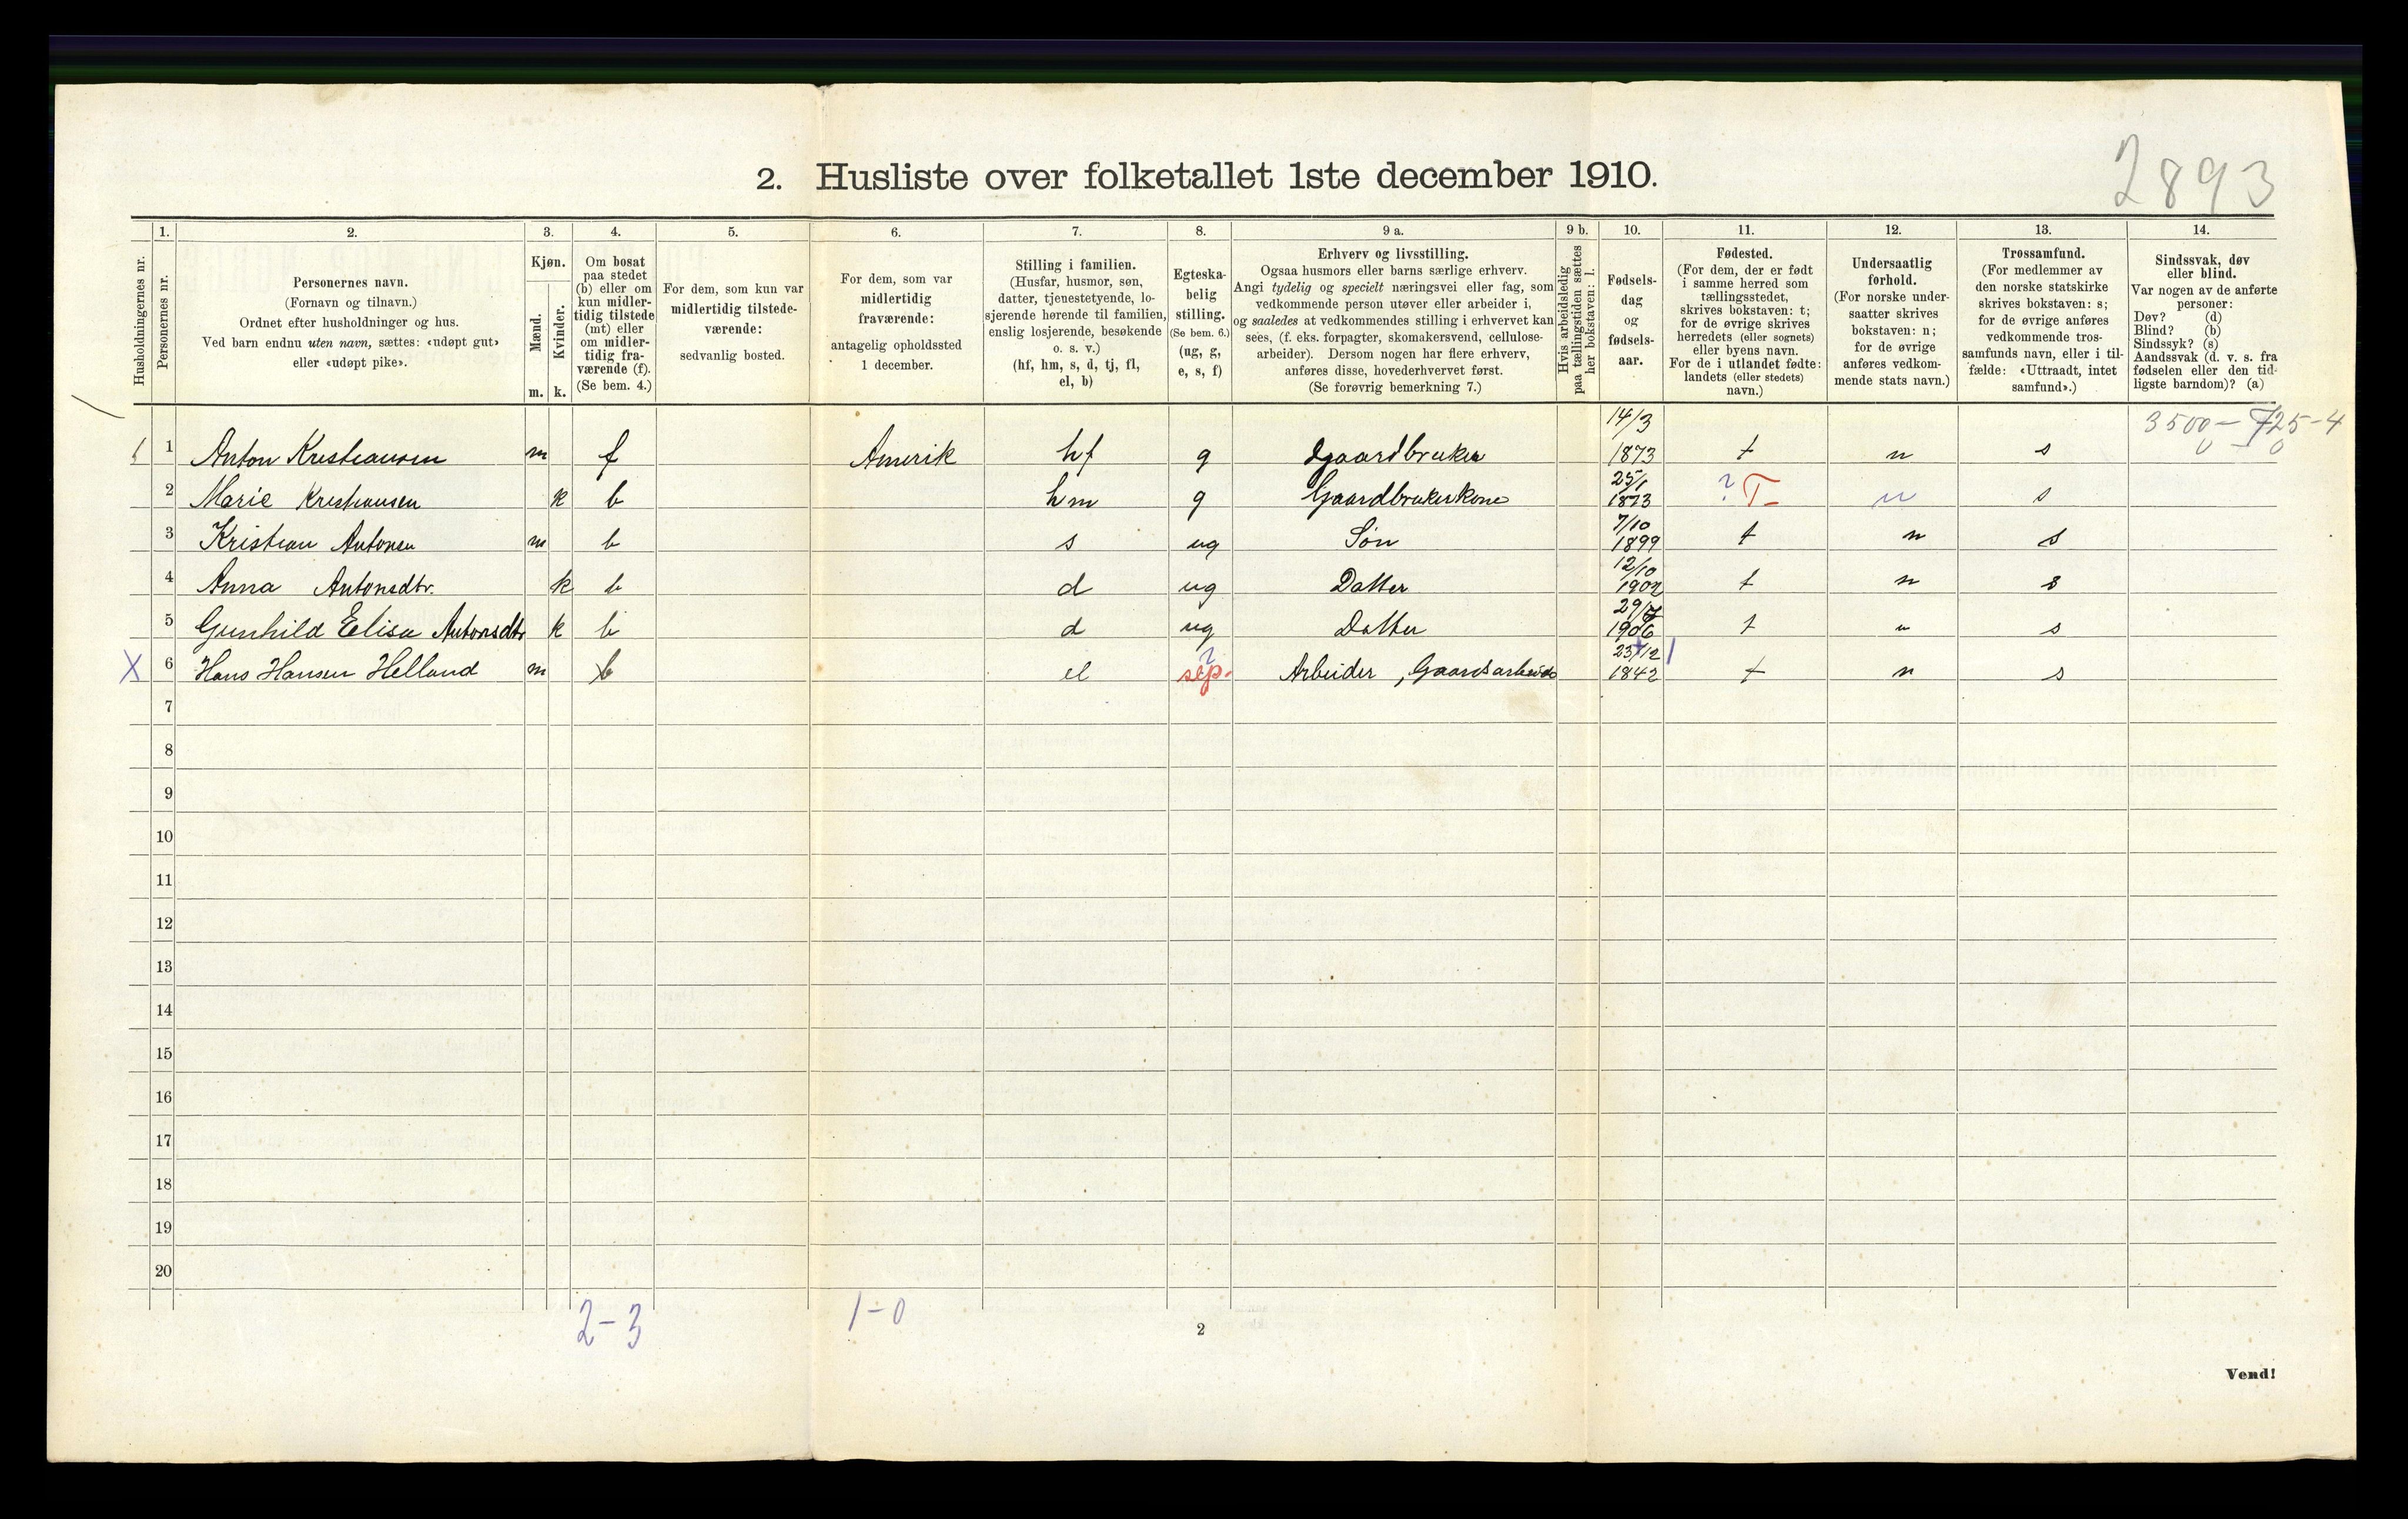 2893
2. Husliste over folketallet 1ste december 1910.
1. 2. 3. 4. 5. 6. 7. 8. 9 a. 9 b. 10. 11. 12. 13. 14.
Husholdningernes nr.
Personernes nr.
Personernes navn.
(Fornavn og tilnavn.)
Ordnet efter husholdninger og hus.
Ved barn endnu uten navn, sættes: «udøpt gut»
eller «udøpt pike».
Kjøn.
Mænd.
Kvinder.
m. k.
Om bosat
paa stedet
(b) eller om
kun midler-
tidig tilstede
(mt) eller
om midler-
tidig fra-
værende (f).
(Se bem. 4.)
For dem, som kun var
midlertidig tilstede-
værende:
sedvanlig bosted.
For dem, som var
midlertidig
fraværende:
antagelig opholdssted
1 december.
Stilling i familien.
(Husfar, husmor, søn,
datter, tjenestetyende, lo-
sjerende hørende til familien,
enslig losjerende, besøkende
o. s. v.)
(hf, hm, s, d, tj, fl,
el, b)
Egteska-
belig
stilling.
(Se bem. 6.)
(ug, g,
e, s, f)
Erhverv og livsstilling.
Ogsaa husmors eller barns særlige erhverv.
Angi tydelig og specielt næringsvei eller fag, som
vedkommende person utøver eller arbeider i,
og saaledes at vedkommendes stilling i erhvervet kan
sees, (f. eks. forpagter, skomakersvend, cellulose-
arbeider). Dersom nogen har flere erhverv,
anføres disse, hovederhvervet først.
(Se forøvrig bemerkning 7.)
Hvis arbeidsledig
paa tællingstiden sættes
her bokstaven: l.
Fødsels-
dag
og
fødsels-
aar.
Fødested.
(For dem, der er født
i samme herred som
tællingsstedet,
skrives bokstaven: t;
for de øvrige skrives
herredets (eller sognets)
eller byens navn.
For de i utlandet fødte:
landets (eller stedets)
navn.)
Undersaatlig
forhold.
(For norske under-
saatter skrives
bokstaven: n;
for de øvrige
anføres vedkom-
mende stats navn.)
Trossamfund.
(For medlemmer av
den norske statskirke
skrives bokstaven: s;
for de øvrige anføres
vedkommende tros-
samfunds navn, eller i til-
fælde: «Uttraadt, intet
samfund».)
Sindssvak, døv
eller blind.
Var nogen av de anførte
personer:
Døv? (d)
Blind? (b)
Sindssyk? (s)
Aandssvak (d. v. s. fra
fødselen eller den tid-
ligste barndom)? (a)
3500 - 725-4
0 - 0
1 1 Anton Kristiansen m f Amerik hf g Gaardbruker 14/3 1873 t n s
2 Marie Kristiansen k b hm g Gaardbrukerkone 25/1 1873 ? T n s
3 Kristian Antonsen m b s ug Søn 7/10 1899 t n s
4 Anna Antonsdtr. k b d ug Datter 12/10 1902 t n s
5 Gunhild Elisa Antonsdtr k b d ug Datter 29/7 1906 t n s
X 6 Hans Hansen Helland m b el ? sep. Arbeider, Gaardsarbeide 23/12 1842 t n s
7
8
9
10
11
12
13
14
15
16
17
18
19
20
2-3 1-0
2
Vend!